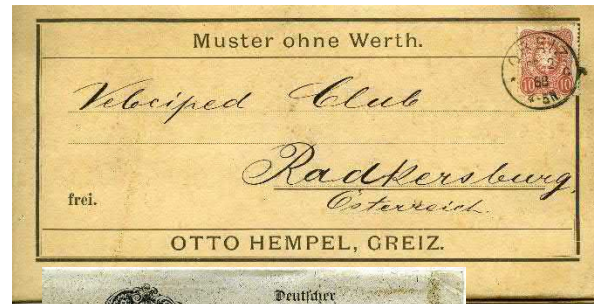 Muster ohne Werth.
GREIZ
88
4-5N
10 10
Velociped Club
Radkersburg,
frei.
Österreich.
OTTO HEMPEL, GREIZ.
Deutscher